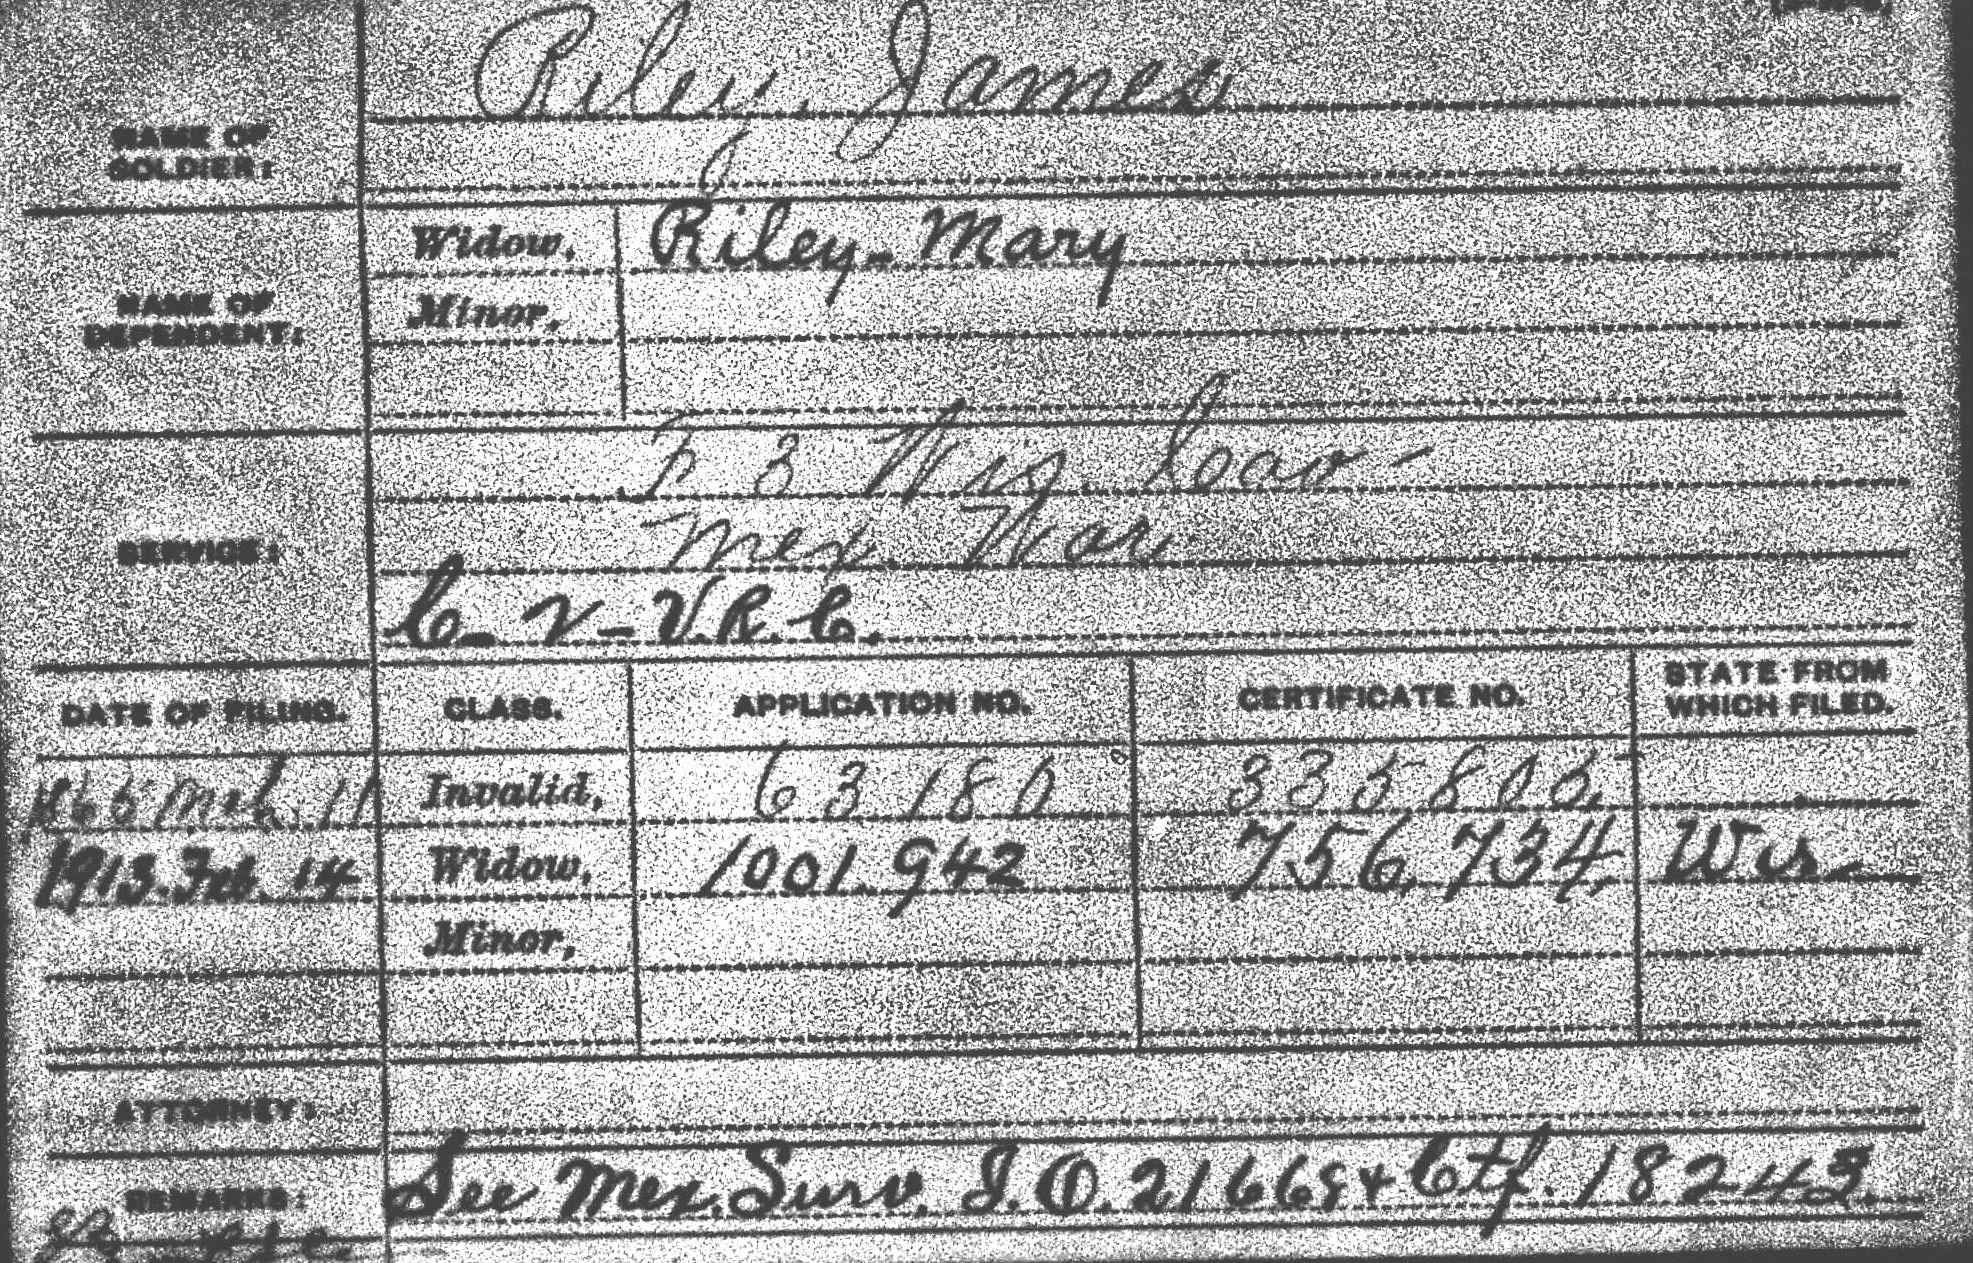 Riley, James
NAME OF
SOLDIER:
Widow, Riley - Mary
Minor,
NAME OF
DEPENDENT:
F 3 Wis. Cav -
Mex War
SERVICE:
C - V - V.R.C.
DATE OF FILING. CLASS. APPLICATION NO. CERTIFICATE NO. STATE FROM WHICH FILED.
Mch. 11 Invalid, 63180
1913. Feb. 14 Widow, 1001.942 756,734, Wis -
Minor,
ATTORNEY:
REMARKS: See Mex. Surv. Ctf. 18243.